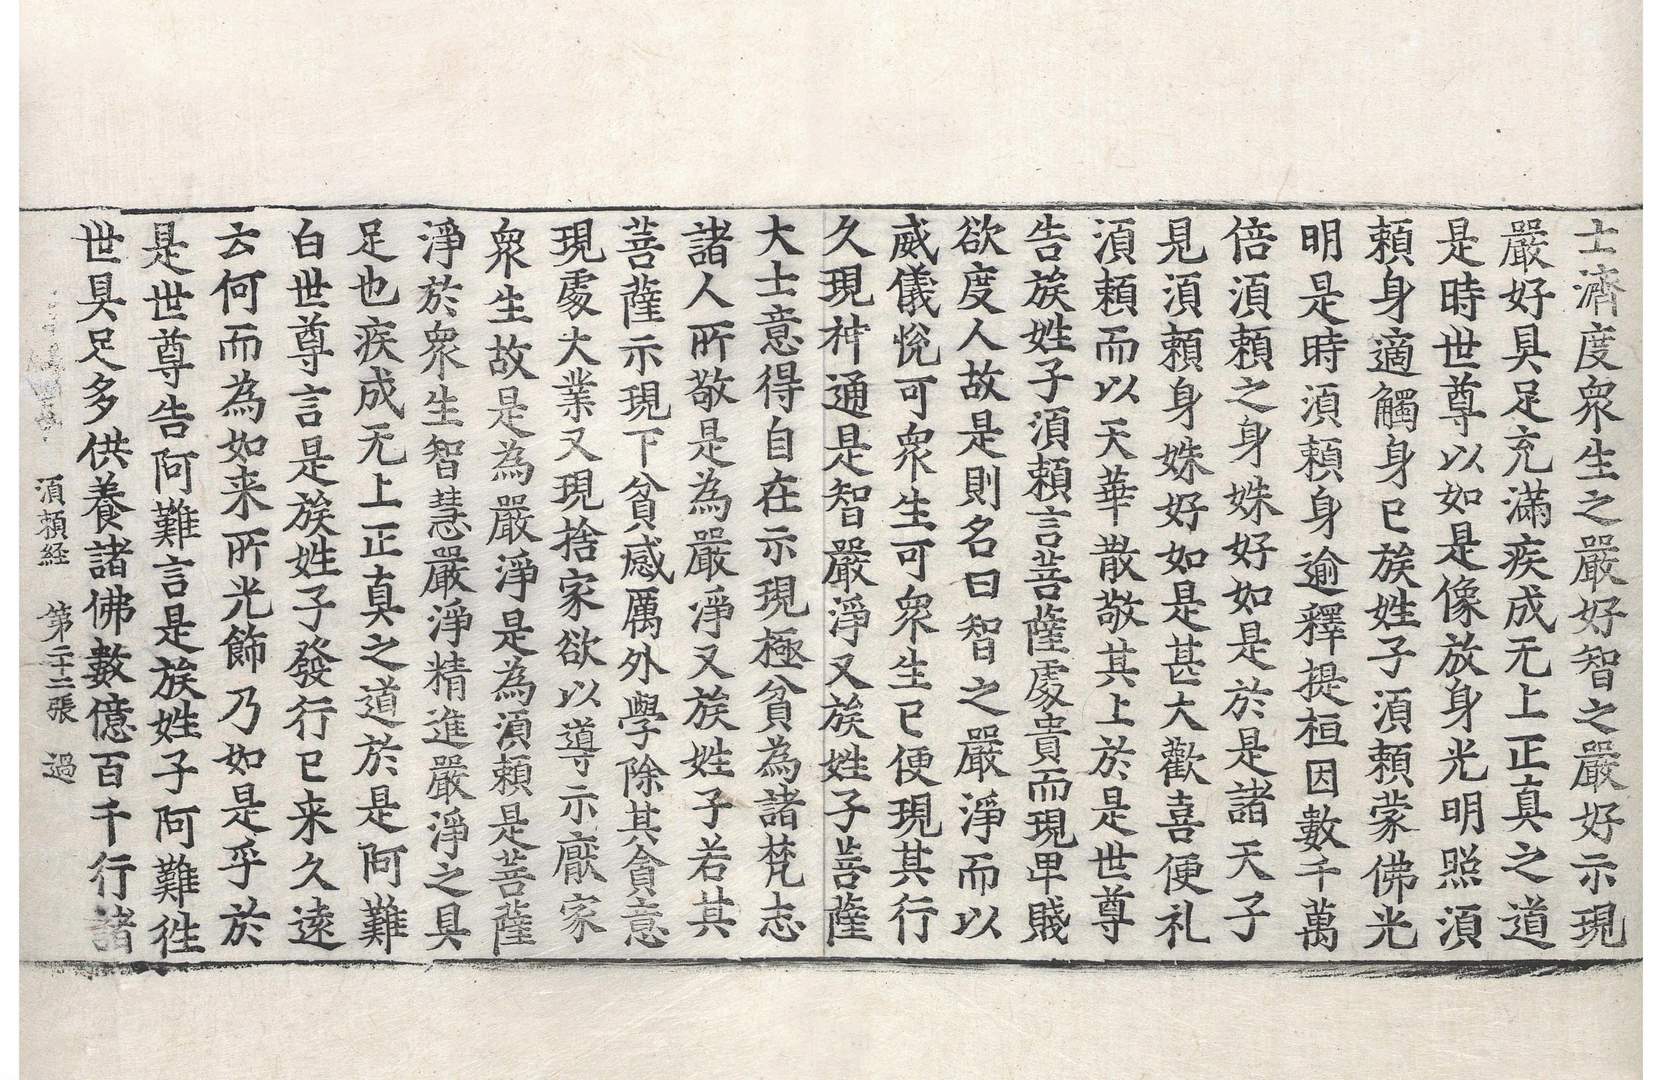 士濟度衆生之嚴好智之嚴好示現
嚴好具足充滿疾成无上正真之道
是時世尊以如是像放身光明照湏
頼身適觸身已族姓子湏頼蒙佛光
明是時湏頼身逾釋提桓因數千萬
倍湏頼之身姝好如是於是諸天子
見湏頼身姝好如是甚大歡喜便礼
湏頼而以天華散敬其上於是世尊
告族姓子湏頼言菩薩處貴而現卑賤
欲度人故是則名曰智之嚴淨而以
威儀悅可衆生可衆生已便現其行
久現神通是智嚴淨又族姓子菩薩
大士意得自在示現極貧為諸梵志
諸人所敬是為嚴淨又族姓子若其
菩薩示現下貧感厲外學除其貪意
現處大業又現捨家欲以導示厭家
衆生故是為嚴淨是為湏頼是菩薩
淨於衆生智慧嚴淨精進嚴淨之具
足也疾成无上正真之道於是阿難
白世尊言是族姓子發行已来久遠
云何而為如来所光飾乃如是乎於
是世尊告阿難言是族姓子阿難徃
世具足多供養諸佛數億百千行諸
湏頼経 第二十二張 過